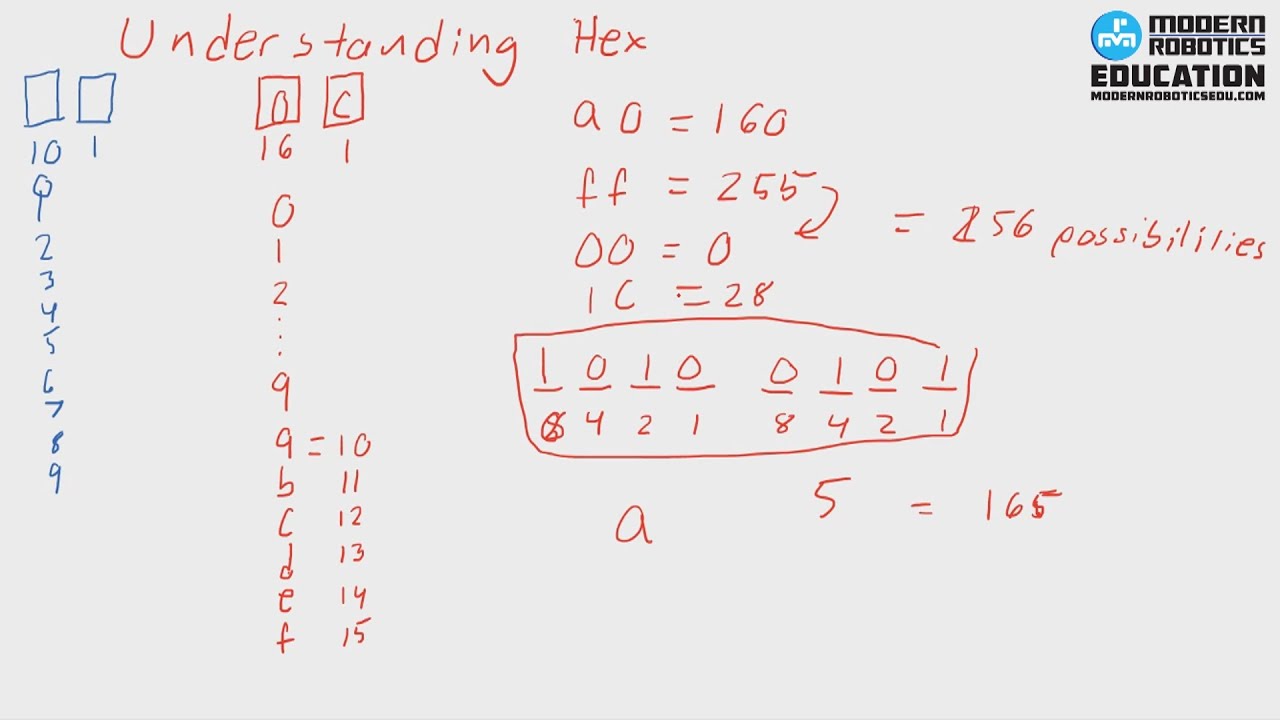 Understanding Hex
MODERN
ROBOTICS
EDUCATION
MODERNROBOTICSEDU.COM
10 1
0
1
2
3
4
5
6
7
8
9
0 C
16 1
0
1
2
:
:
9
a = 10
b 11
c 12
d 13
e 14
f 15
a0 = 160
ff = 255
= 256 possibilities
00 = 0
1C = 28
1 0 1 0 0 1 0 1
8 4 2 1 8 4 2 1
a 5 = 165